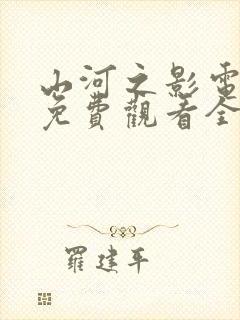 山河之影電
免費觀看全
羅建平